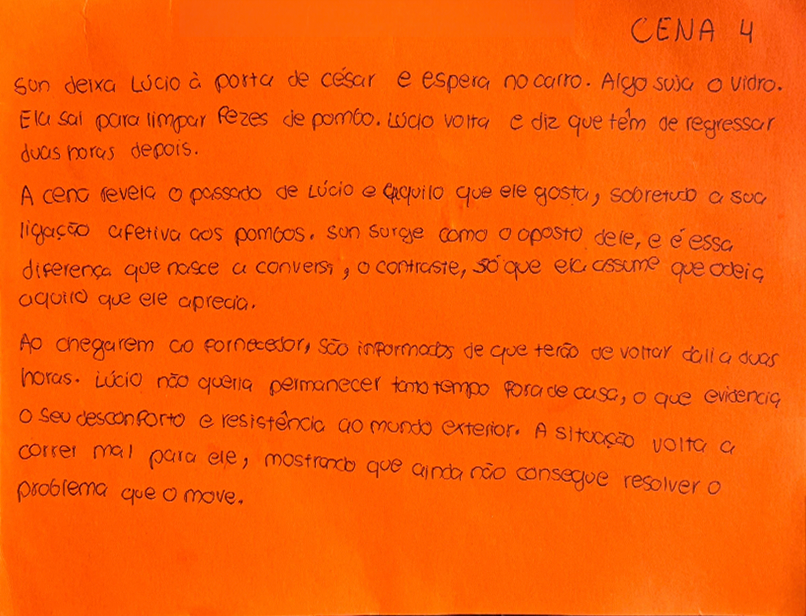 CENA 4
Sun deixa Lúcio à porta de césar e espera no carro. Algo suja o vidro.
Ela sai para limpar fezes de pombo. Lúcio volta e diz que têm de regressar
duas horas depois.
A cena revela o passado de Lúcio e aquilo que ele gosta, sobretudo a sua
ligação afetiva aos pombos. Sun surge como o oposto dele, e é essa
diferença que nasce a conversa, o contraste, só que ela assume que odeia
aquilo que ele aprecia.
Ao chegarem ao fornecedor, são informados de que terão de voltar dali a duas
horas. Lúcio não queria permanecer tanto tempo fora de casa, o que evidencia
o seu desconforto e resistência ao mundo exterior. A situação volta a
correr mal para ele, mostrando que ainda não consegue resolver o
problema que o move.